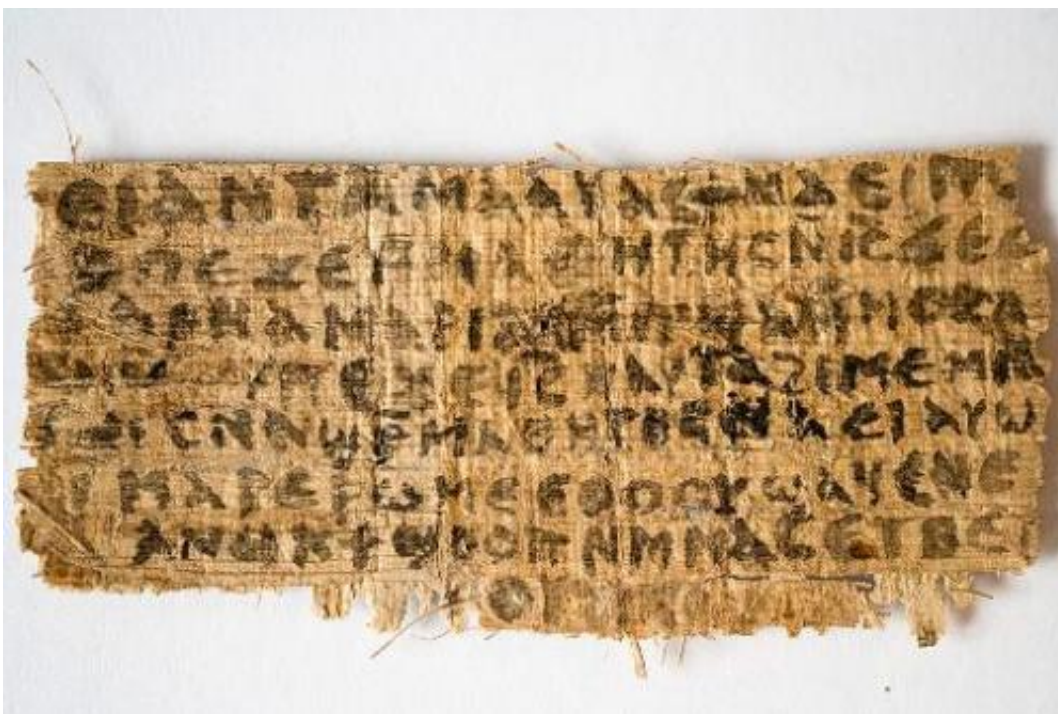 ⲉⲓⲁⲛⲧⲁⲙⲁⲁⲩⲁⲥϯⲛⲁⲉⲓⲡ
ⲡⲉϫⲉⲙⲙⲁⲑⲏⲧⲏⲥⲛⲓ̅ⲥ̅ϫⲉⲥ
ⲁⲣⲛⲁⲙⲁⲣⲓⲁⲙⲙⲡϣⲁⲙⲙⲟⲥⲁ
ⲡⲉϫⲉⲓ̅ⲥ̅ⲛⲁⲩⲧⲁϩⲓⲙⲉⲙⲛ
ⲥⲛⲁϣⲣⲙⲁⲑⲏⲧⲏⲥⲛⲁⲉⲓⲁⲩⲱ
ⲙⲁⲣⲉⲣⲱⲙⲉⲉⲑⲟⲟⲩϣⲁϥⲉⲛⲉ
ⲁⲛⲟⲕϯϣⲟⲟⲡⲛⲙⲙⲁⲥⲉⲧⲃⲉ